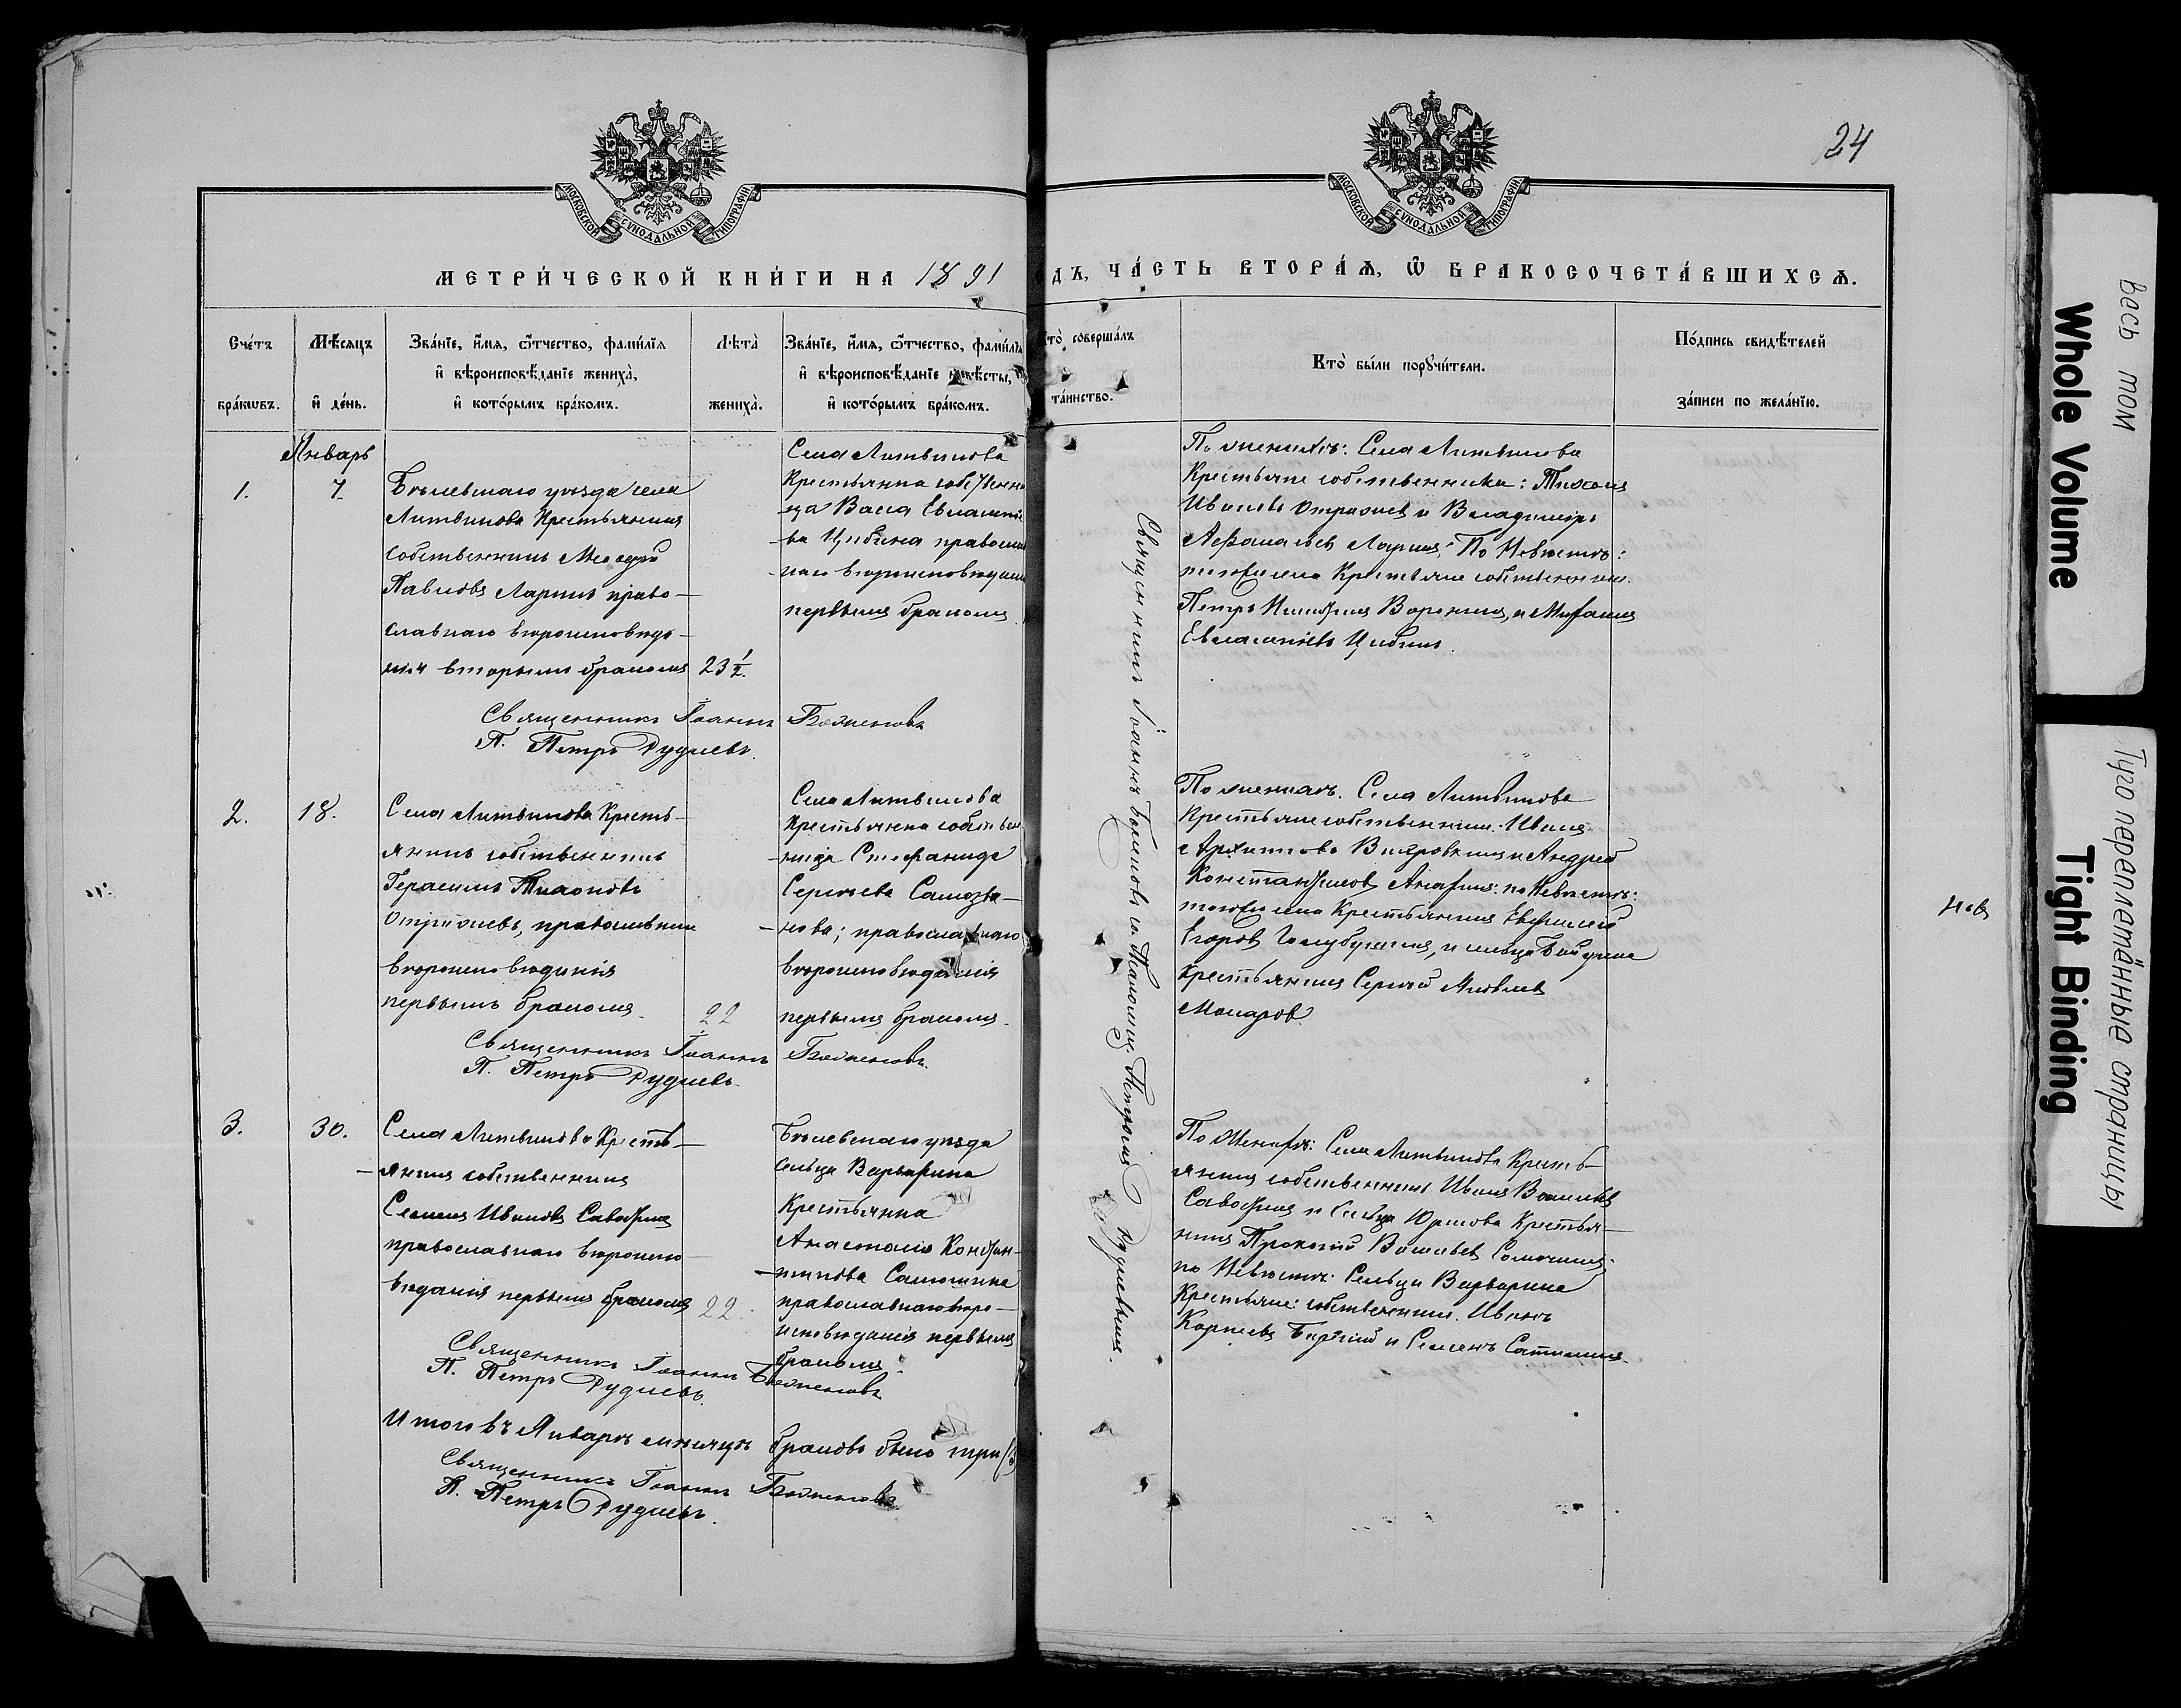 24
МОСКОВСКОЙ СѴНОДАЛЬНОЙ ТИПОГРАФІИ
МОСКОВСКОЙ СѴНОДАЛЬНОЙ ТИПОГРАФІИ
МЕТРИ́ЧЕСКОЙ КНИ́ГИ НА 1891
ДЪ, ЧА́СТЬ ВТОРА́Ѧ, Ѡ҆ БРАКОСОЧЕТА́ВШИХСѦ.
Сче́тъ бра́кωвъ.
Мѣ́сяцъ и҆ де́нь.
Зва́нїе, и҆́мѧ, ѻ҆́тчество, фами́лїѧ
и҆ вѣроисповѣ́данїе жениха̀,
и҆ кото́рымъ бра́комъ.
Лѣта̀ жениха̀.
Зва́нїе, и҆́мѧ, ѻ҆́тчество, фами́лїѧ
и҆ вѣроисповѣ́данїе невѣ́сты,
и҆ кото́рымъ бра́комъ.
то̀ соверша́лъ
та́инство.
Кто̀ бы́ли порꙋчи́тели.
По́дпись свидѣ́телей
за́писи по жела́нїю.
Январь
1.
7
Бѣлевскаго уѣзда села
Литвинова Крестьянинъ
собственникъ
Павловъ Ларинъ право-
славнаго вѣроисповѣда-
нія вторымъ бракомъ
23 1/2.
Села Литвинова
Крестьянка собственни
ца Васса Евлампіе
-ва Цибина православ
наго вѣроисповѣданія
первымъ бракомъ
По женихѣ: Села Литвинова
Крестьяне собственники: Тихонъ
Ивановъ Отрохов и Владиміръ
Афанасьев Ларинъ; По Невѣстѣ:
тогоже села Крестьяне собственники.
Петръ Никитинъ Воронинъ, и
Евлампіевъ Цибин.
Священникъ Іоаннъ Боженовъ
П. Петръ Рудневъ.
2.
18.
Села Литвинова Кресть-
янинъ собственникъ
Герасимъ Тихоновъ
Отроховъ, православнаго
вѣроисповѣданія
первымъ бракомъ.
22
Села Литвинова
Крестьянка собствен
-ница Стефанида
Сергѣева Самозва-
-нова; православнаго
вѣроисповѣданія
первымъ бракомъ.
По женихѣ. Села Литвинова
Крестьяне собственники. Иванъ
Архипова и Андрей
Константинов по Невѣстѣ:
тогоже села Крестьянинъ Евфимій
Егоров Голубушкинъ, и сельца
крестьянинъ Сергѣй Яковлев
Макаров.
Священникъ Іоаннъ Боженовъ.
П. Петръ Рудневъ.
3.
30.
Села Литвинова Кресть-
-янинъ собственникъ
Семенъ Ивановъ Савоткинъ
православнаго вѣроиспо-
вѣданія первымъ бракомъ
22.
Бѣлевскаго уѣзда
сельца Варварина
Крестьянка
Анастасія Констан-
-тинова Самошина
православнаго вѣро-
исповѣданія первымъ
бракомъ.
По Женихѣ: Села Литвинова Кресть-
янинъ собственникъ Иванъ Васильев
Савоткинъ и сельца Юркова Крестья-
нинъ Прокопій Васильев
по Невѣстѣ: Сельца Варварина
Крестьяне: собственники. Иванъ
Корнеевъ и Семенъ
Священникъ Іоаннъ Боженовъ
П. Петръ Рудневъ.
Итого въ Январѣ мѣсяцѣ браковъ было три (3
Священникъ Іоаннъ Боженовъ
П. Петръ Рудневъ.
Священникъ Іоаннъ Боженовъ съ Псаломщ. Петромъ Рудневымъ.
весь том
Whole Volume
Туго переплетённые страницы
Tight Binding